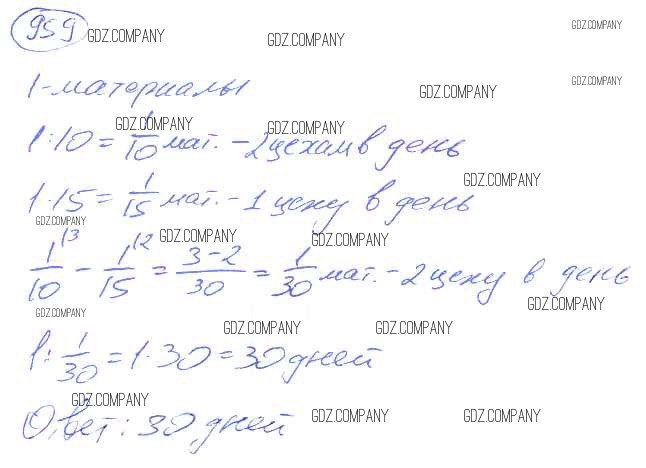 959 GDZ.COMPANY GDZ.COMPANY GDZ.COMPANY
1-материалы GDZ.COMPANY GDZ.COMPANY
GDZ.COMPANY GDZ.COMPANY
1:10=1/10 мат. - 2 цехам в день
GDZ.COMPANY
1:15=1/15 мат. - 1 цеху в день
GDZ.COMPANY GDZ.COMPANY GDZ.COMPANY
1/10 \3 - 1/15 \2 = 3-2/30 = 1/30 мат. - 2 цеху в день
GDZ.COMPANY GDZ.COMPANY
GDZ.COMPANY GDZ.COMPANY
1:1/30=1·30=30 дней
GDZ.COMPANY GDZ.COMPANY GDZ.COMPANY
Ответ: 30 дней